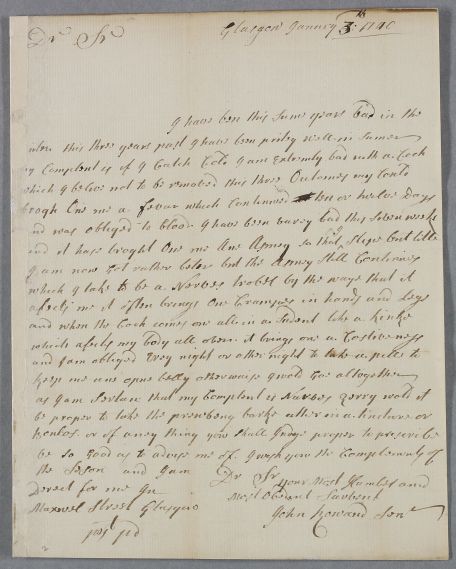 Dr Sr
Glasgow Janury 3th 1740
I have ben this sume years bad in the
this three years past I have been prity well in Sumer
my Complent is if I Catch Cold I am Extremly bad with a Coch
which I belive not to be remoted this three Outomes my Could
brogh One me a fevar which Continowed ten or twelve Days
and was obliged to blood I have been varey bad this seven weeks
and it hase broght One me Ane Asmey so that I Slepe but litle
I am now Got rather beter but the Asmey Still Continowes
which I take to be a Narves trobel by the waye that it
afects me it often brings One Crampes in hands and Legs
and when the Coch comes one all in a Sudent like a kinke
which afects my body all over it brings one a Costiveness
and I am obliged Evey night or other night to take a pile to
Keep me ane opne belly otherwaise I wold Goe altogether
as I am Sertan that my Complent is Narves Qerry wold it
be proper to take the barke ather in a tincture or
or of aney thing you shall Judge proper to prescribe
be so Good as to advise me of I wish you the Complements of
the Seson and I am
Dr Sr
your Most Humbel and
Most Obedent Sarvent
John Howard Senr
Derect for me In
Maxwel Street Glasgow